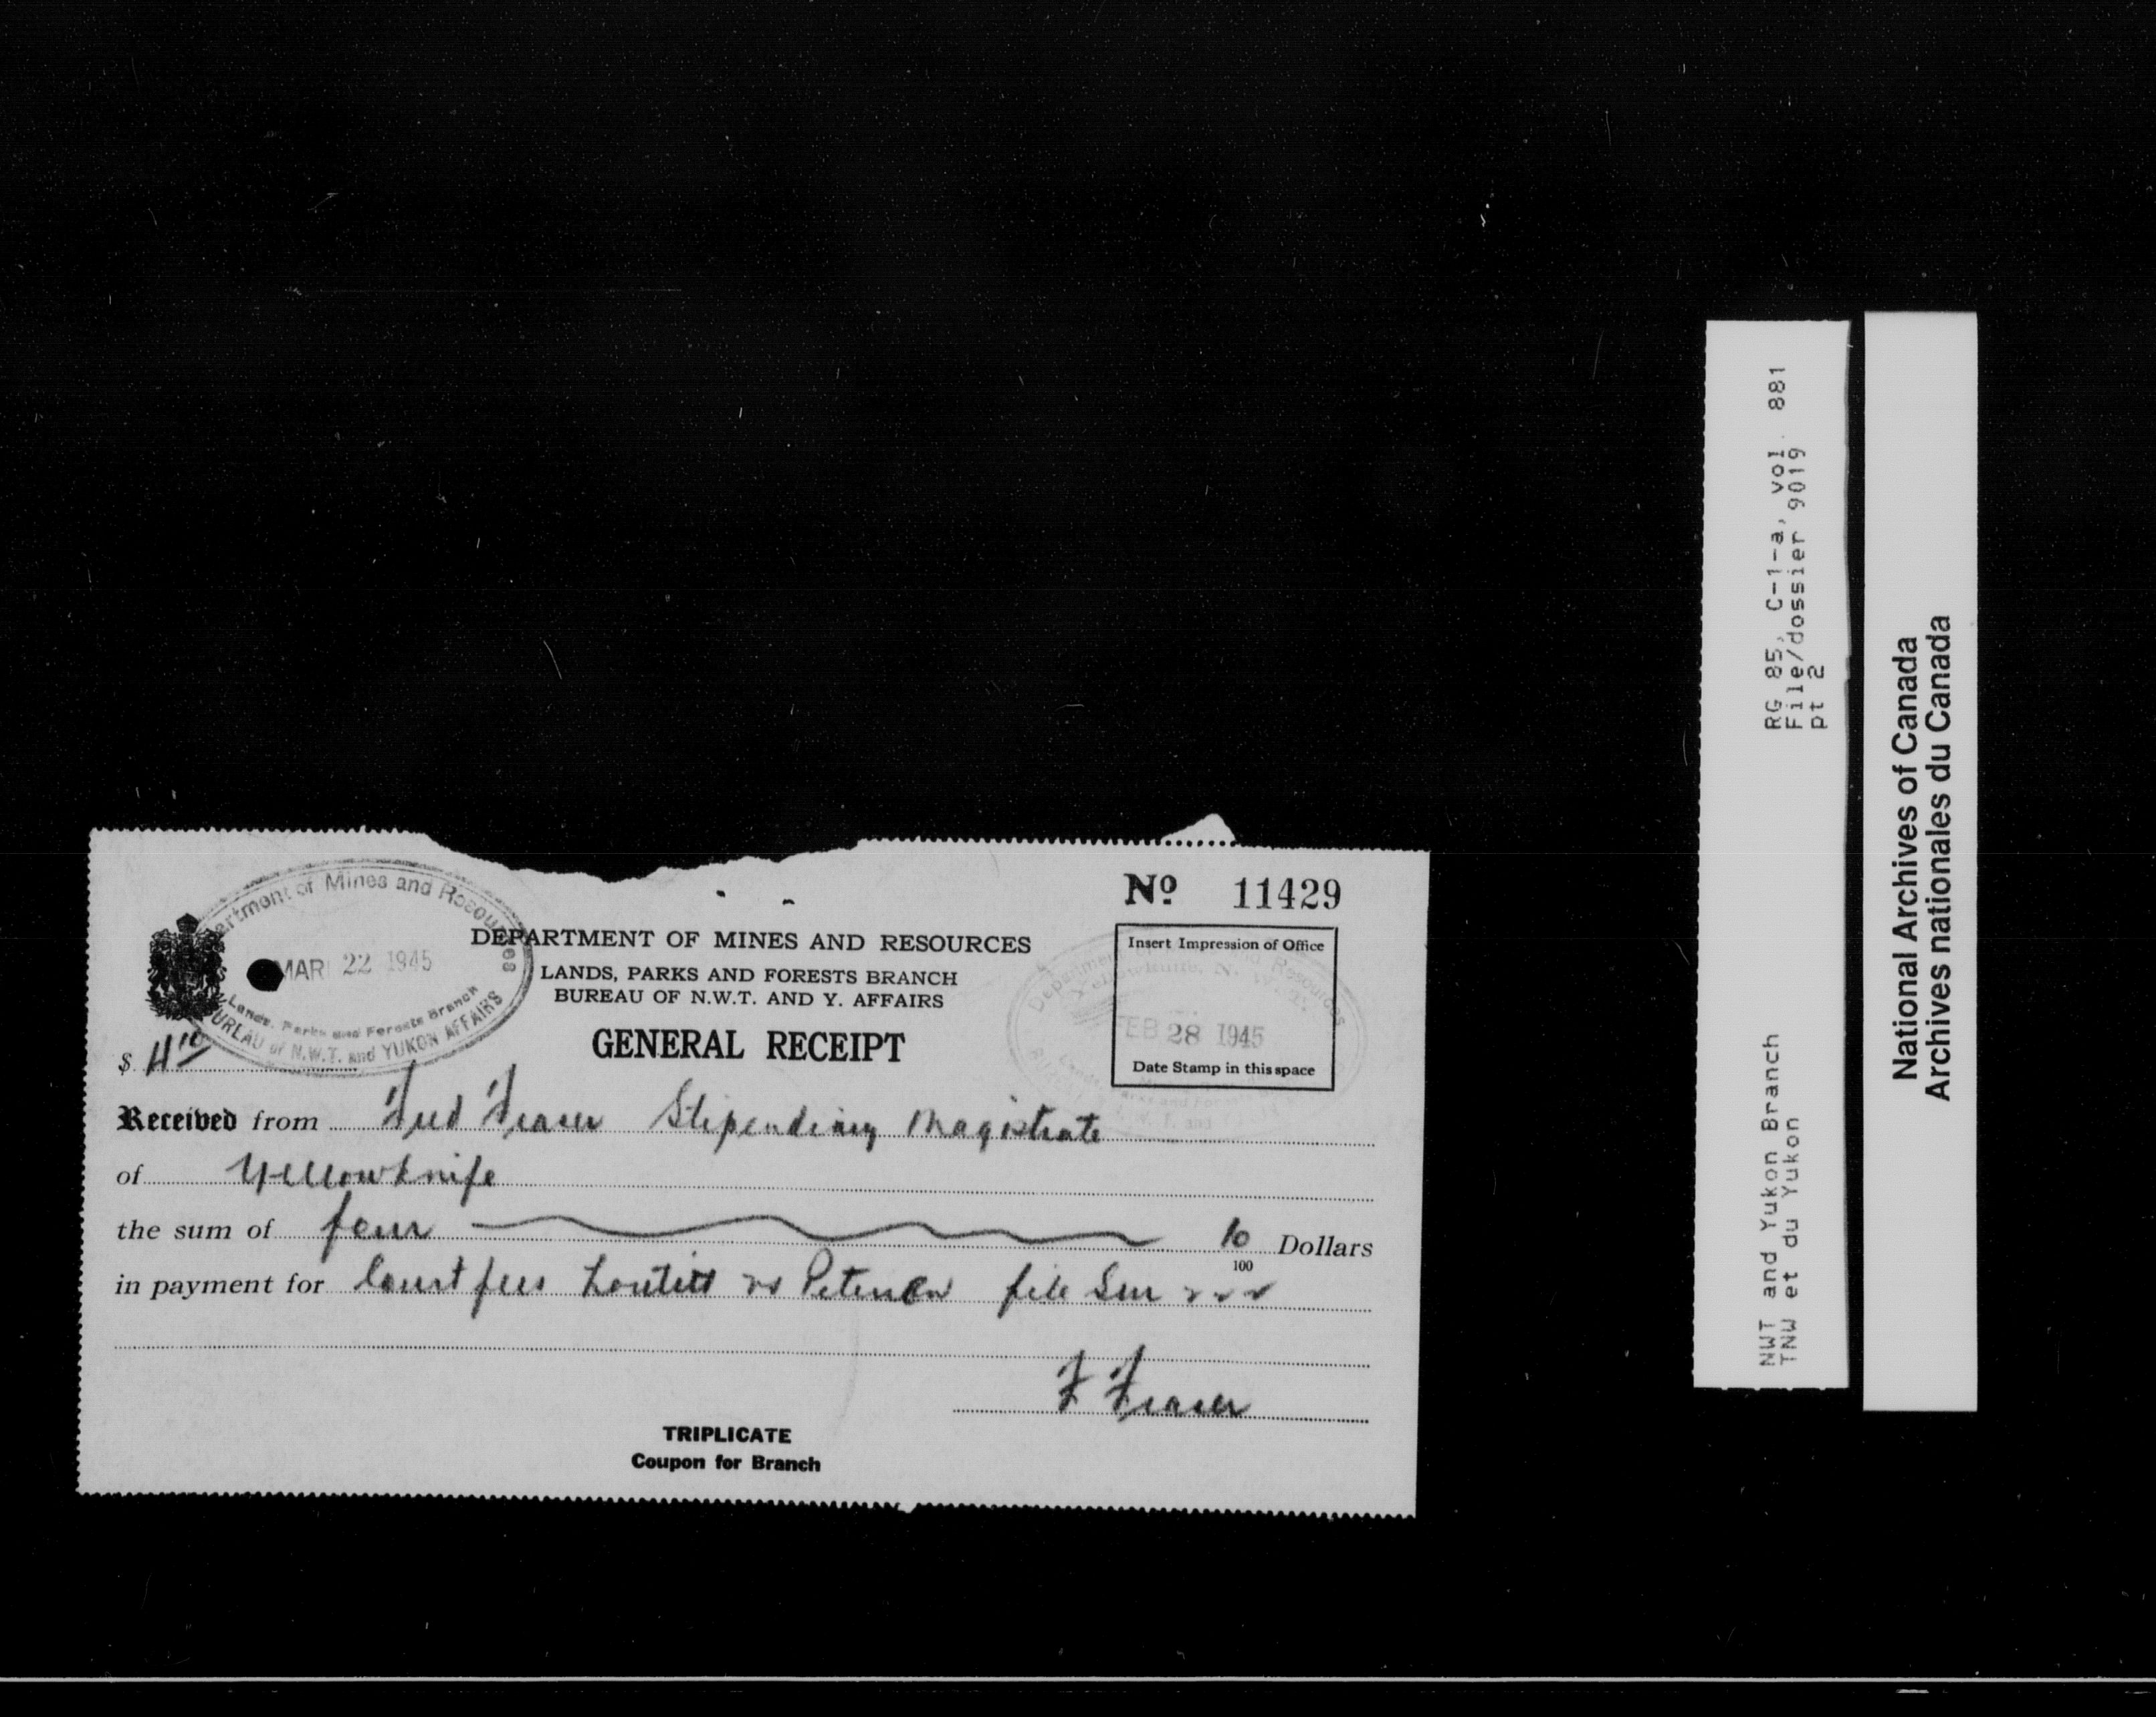 Department of Mines and Resources
MAR 22 1945
Lands, Parks and Forests Branch
BUREAU of N.W.T. and YUKON AFFAIRS
No. 11429
DEPARTMENT OF MINES AND RESOURCES
LANDS, PARKS AND FORESTS BRANCH
BUREAU OF N.W.T. AND Y. AFFAIRS
GENERAL RECEIPT
Insert Impression of Office
Department Resources
Yellowknife, N. W. T.
FEB 28 1945
Date Stamp in this space
$ 4 10
Received from Fred Fraser Stipendiary Magistrate
of Yellowknife
the sum of four 10/100 Dollars
in payment for Court fees Loutitt vs Petersen file
F Fraser
TRIPLICATE
Coupon for Branch
RG 85, C-1-a, vol. 881
File/dossier 9019
pt 2
NWT and Yukon Branch
TNW et du Yukon
National Archives of Canada
Archives nationales du Canada